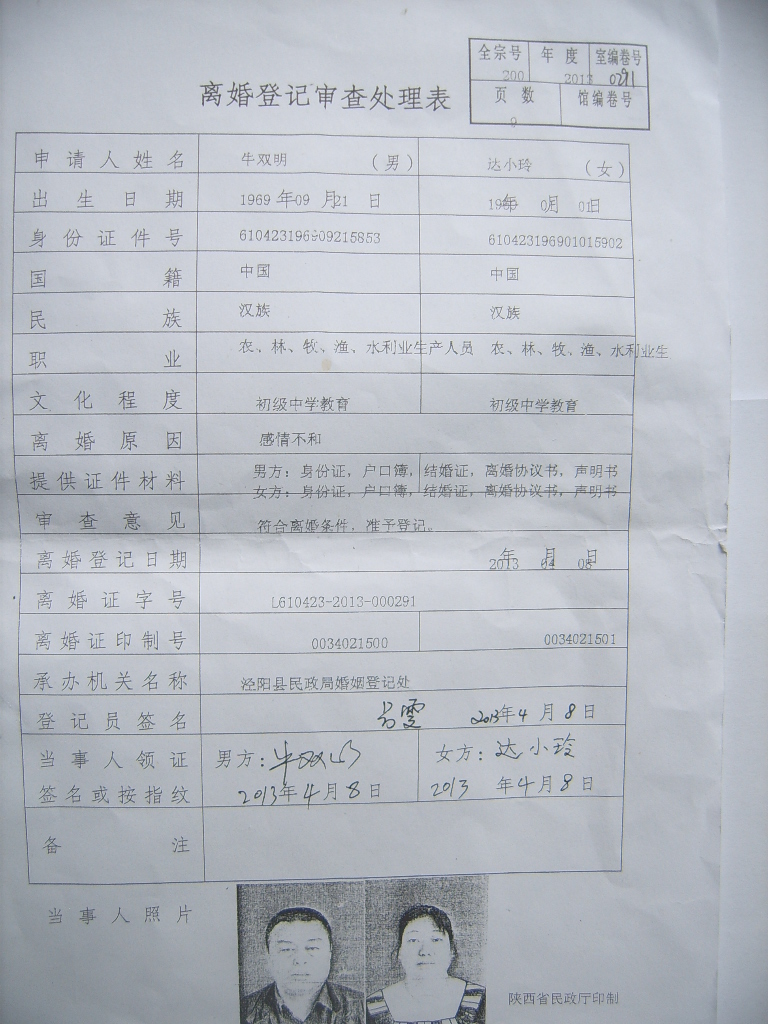 全宗号 年 度 室编卷号
200 2013 0291
页 数 馆编卷号
9
离婚登记审查处理表
申请人姓名 牛双明 (男) 达小玲 (女)
出生日期 1969 年09 月21 日 年 月 01日
身份证件号 610423196909215853 610423196901015902
国籍 中国 中国
民族 汉族 汉族
职业 农、林、牧、渔、水利业生产人员 农、林、牧、渔、水利业生
文化程度 初级中学教育 初级中学教育
离婚原因 感情不和
提供证件材料 男方：身份证，户口簿，结婚证，离婚协议书，声明书
女方：身份证，户口簿，结婚证，离婚协议书，声明书
审查意见 符合离婚条件，准予登记。
离婚登记日期 2013 年 04 月 08 日
离婚证字号 L610423-2013-000291
离婚证印制号 0034021500 0034021501
承办机关名称 泾阳县民政局婚姻登记处
登记员签名 2013年4月8日
当事人领证 男方：牛双明 女方：达小玲
签名或按指纹 2013年4月8日 2013 年4月8日
备注
当事人照片
陕西省民政厅印制